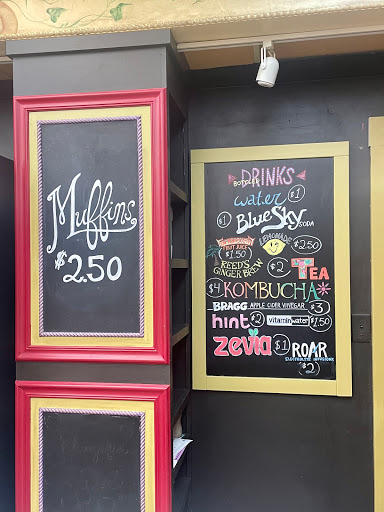 Muffins
$2.50
BOTTLED DRINKS
water $1
$1 Blue Sky SODA
FRUIT JUICE
$1.50
LEMONADE $2.50
REED'S
GINGER BREW
$2 TEA
$4 KOMBUCHA
BRAGG APPLE CIDER VINEGAR $3
hint $2 vitaminwater $1.50
zevia $1 ROAR
$2